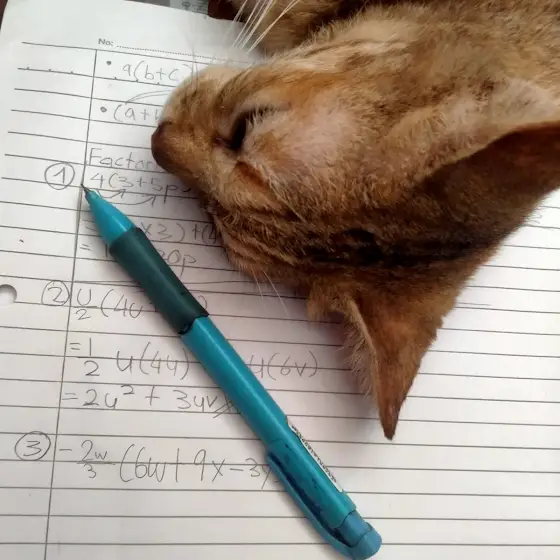 No:
• a(b+c)
• (a+
Factor
① 4(3+5p
= ×3)+(4
= 20p
② u/2 (4u
= 1/2 u(4u) u(6v)
= 2u² + 3uv
③ -2w/3 (6w+9x-3y